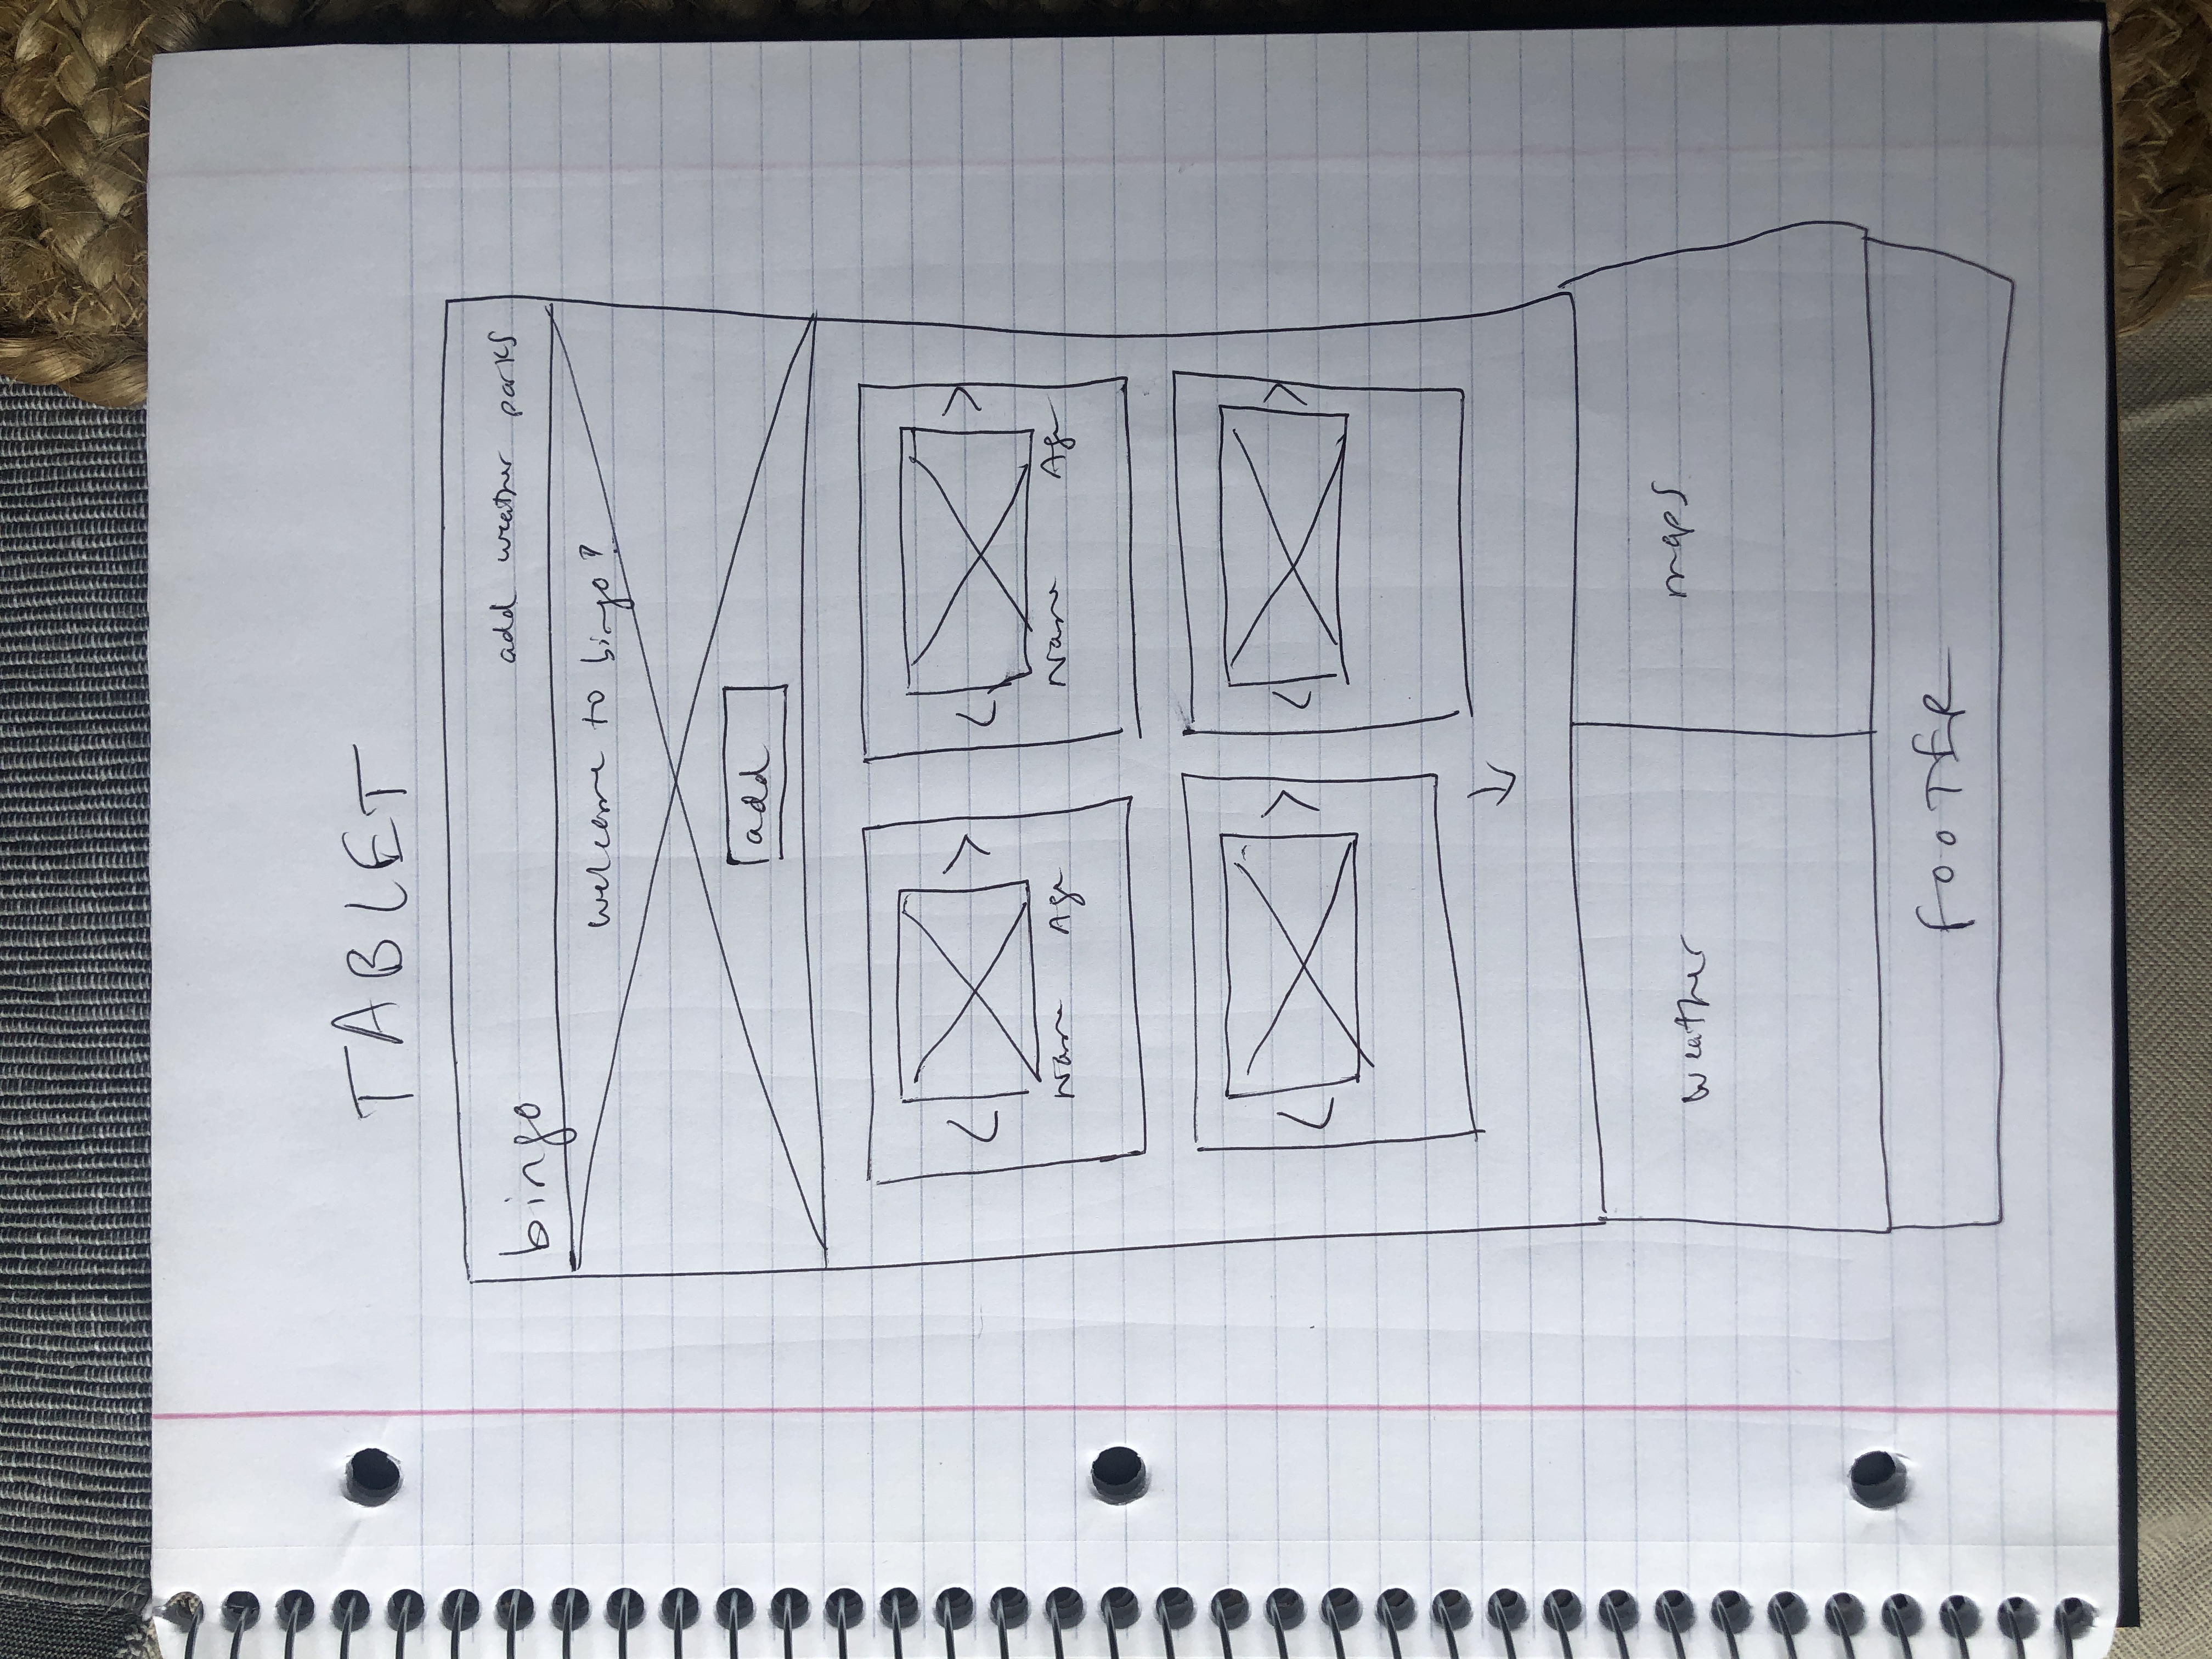 TABLET
bingo add weather parks
welcome to bingo!
add
Name Age Name Age
weather maps
FOOTER